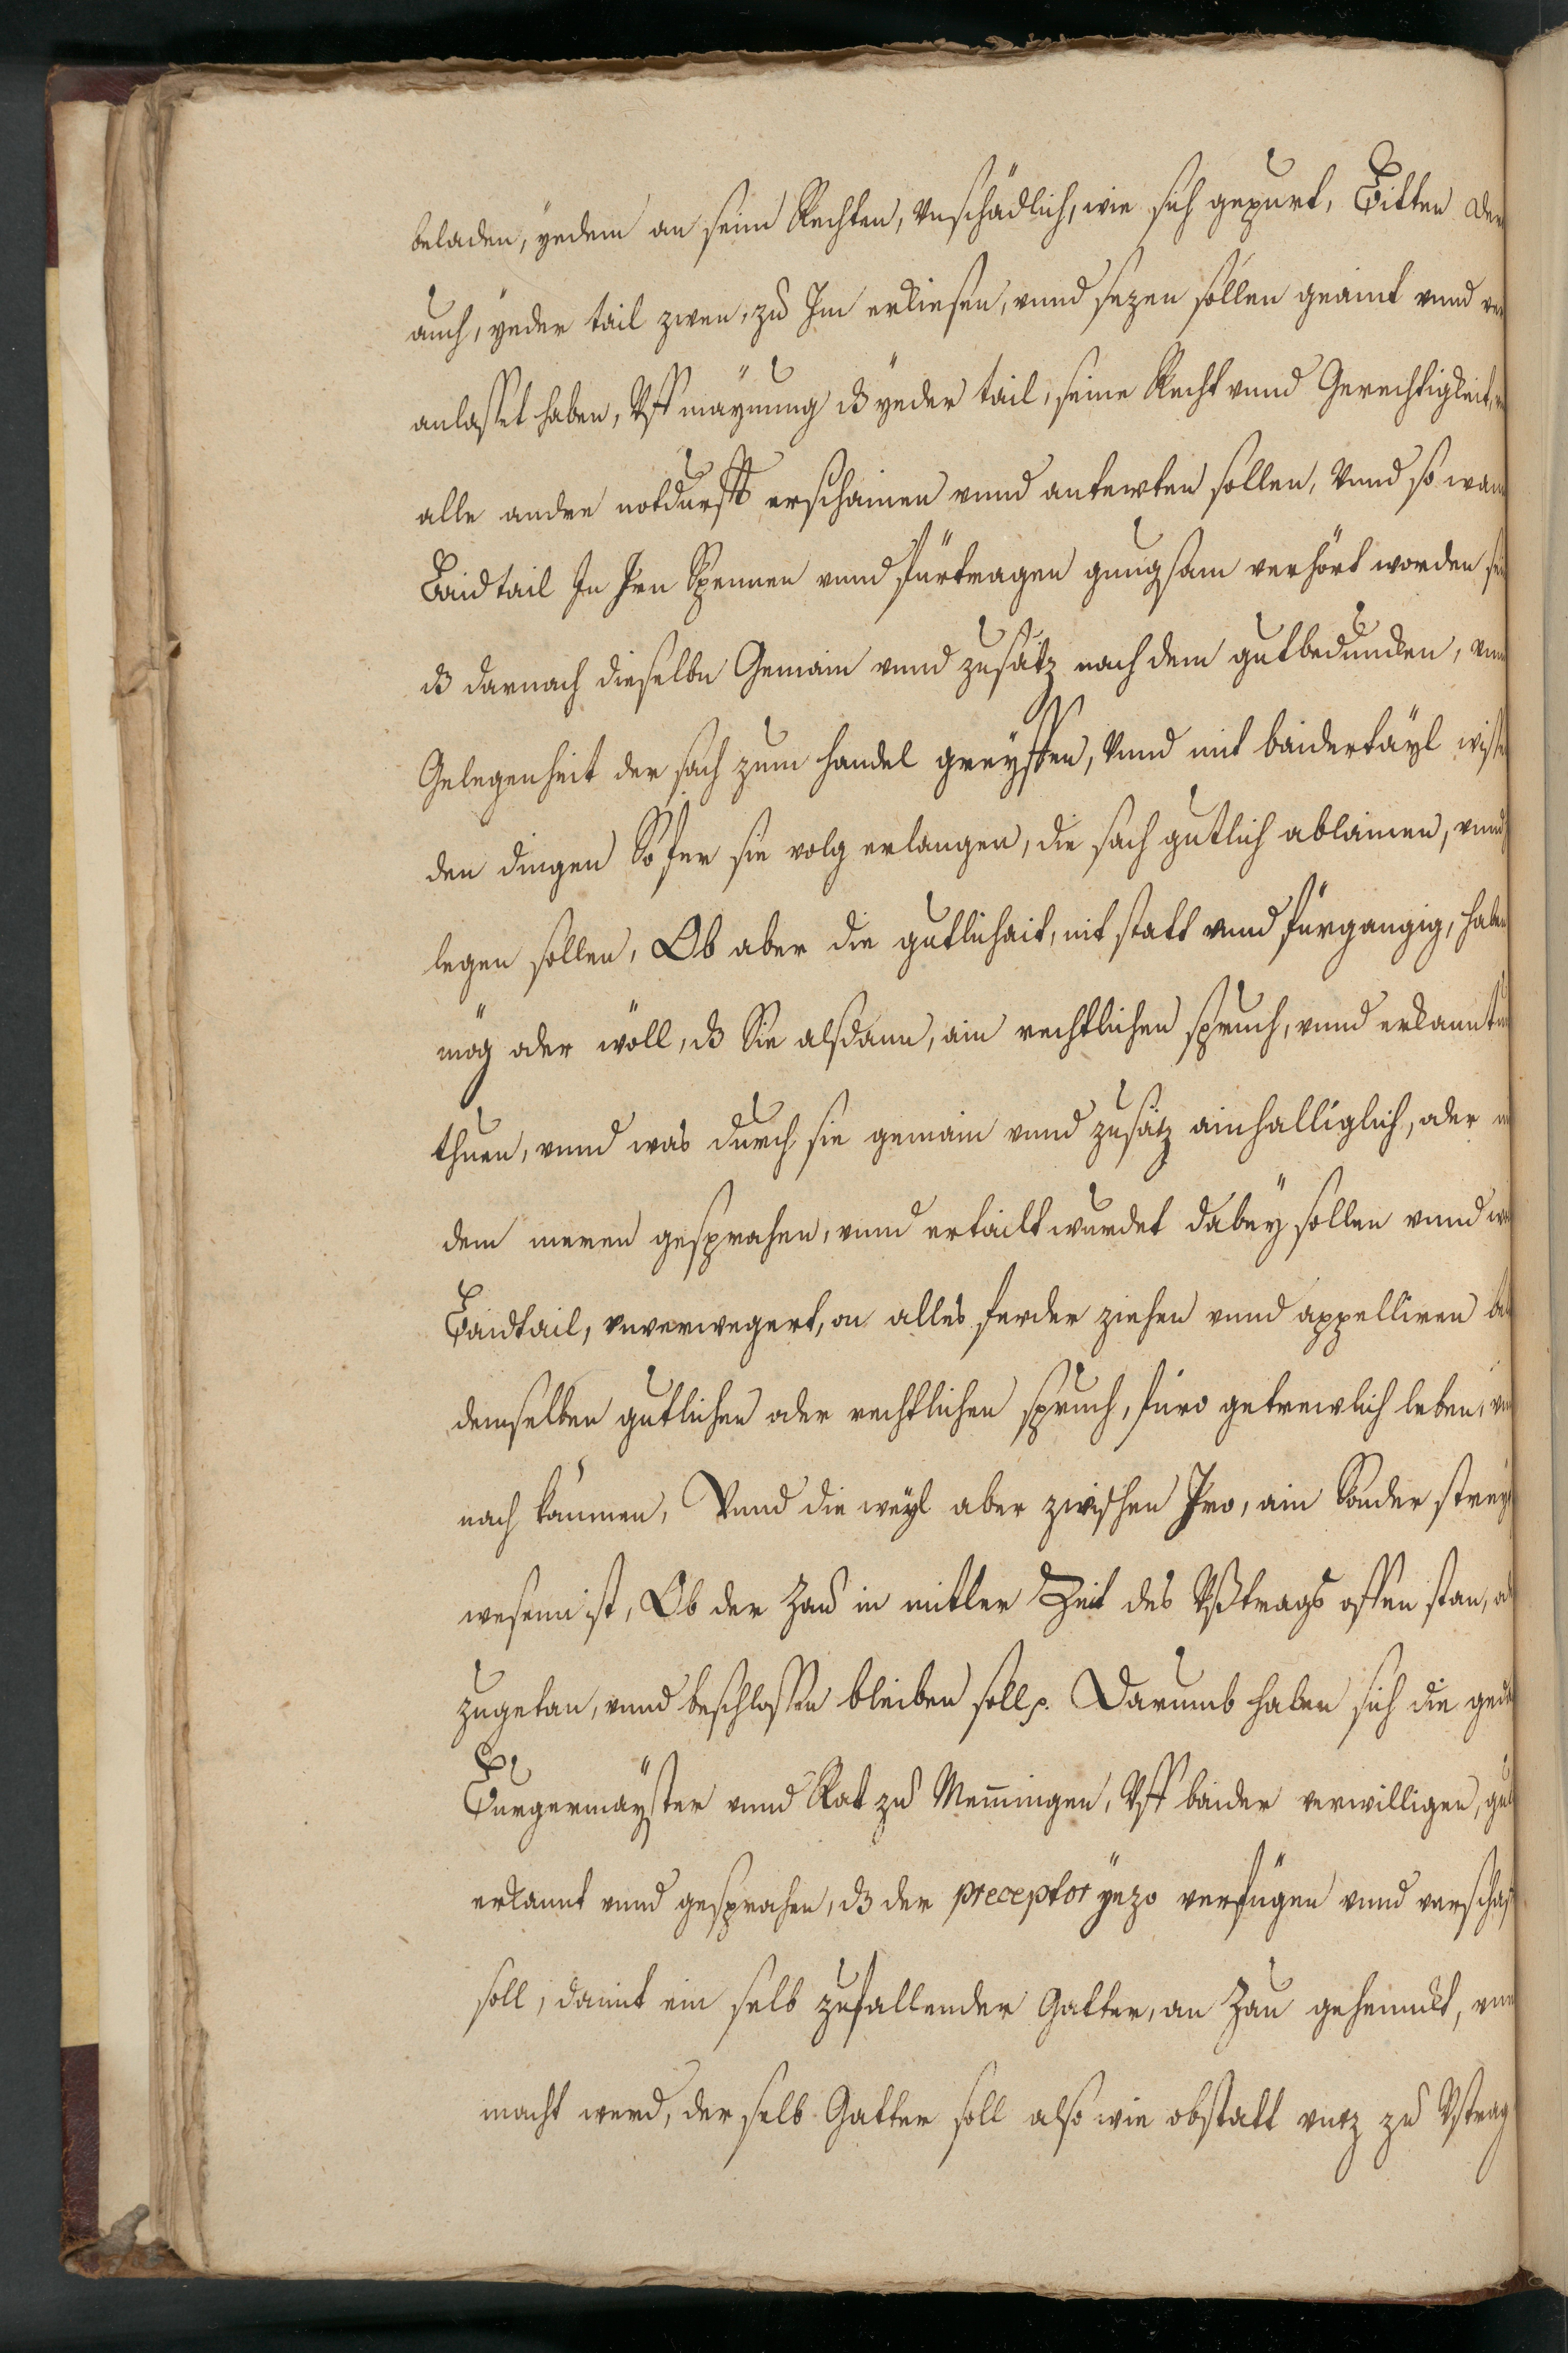 beladen, yedem an seim Rechten, Vnschädlich, wie sich gepurt, Bitten der
auch, yeder tail zwen, zu Im erkiesen, vnnd sezen söllen geaint vnnd ver
anlasset haben, Vff maÿnung dz yeder tail, seine Recht vnnd Gerechtigkeit,
alle andre notdurfft erschainen vnnd antwrten sollen, Vnnd so wan
Baidtail In Irn Spennen vnnd fürtragen gnugsam verhört worden
dz darnach dieselbn Gemain vnnd zusätz nach dem gutbeduncken, vnn
Gelegenheit der sach zum handel greyffen, Vnnd mit baidertäyl wisse
den dingen So fer sie volg erlangen, die sach gutlich ablainen, vnnd
legen sollen, Ob aber die gutlichait, nit statt vnnd fürgangig, haben
mög oder wöll, dz Sie alsdann, ain rechtlichen spruch, vnnd erkanntn
thuen, vnnd was durch sie gemain vnnd zusätz ainhalliglich, oder
dem meren gesprochen, vnnd ertailt wurdet dabeÿ sollen vnnd
Baidtail, vnverwegert, on alles ferder ziehen vnnd appelliren
demselben gutlichen oder rechtlichen spruch, füro getrewlich leben,
nach kämmen, Vnnd die weÿl aber zwischen Iro, ain Sonder
wesenn ist, Ob der Zau in mitler Zeit des Vßtrags offen stan,
zugetan, vnnd beschlossen bleiben soll. Darumb haben sich die
Burgermäyster vnnd Rat zu Memingen, Vff baider verwilligen,
erkannt vnnd gesprochen, dz der preceptor yezo verfügen vnnd verschaf
soll, damit ein selb zufallender Gatter, an Zau gehennckt,
macht werd, der selb Gatter soll also wie obstatt vntz zu Vstrag